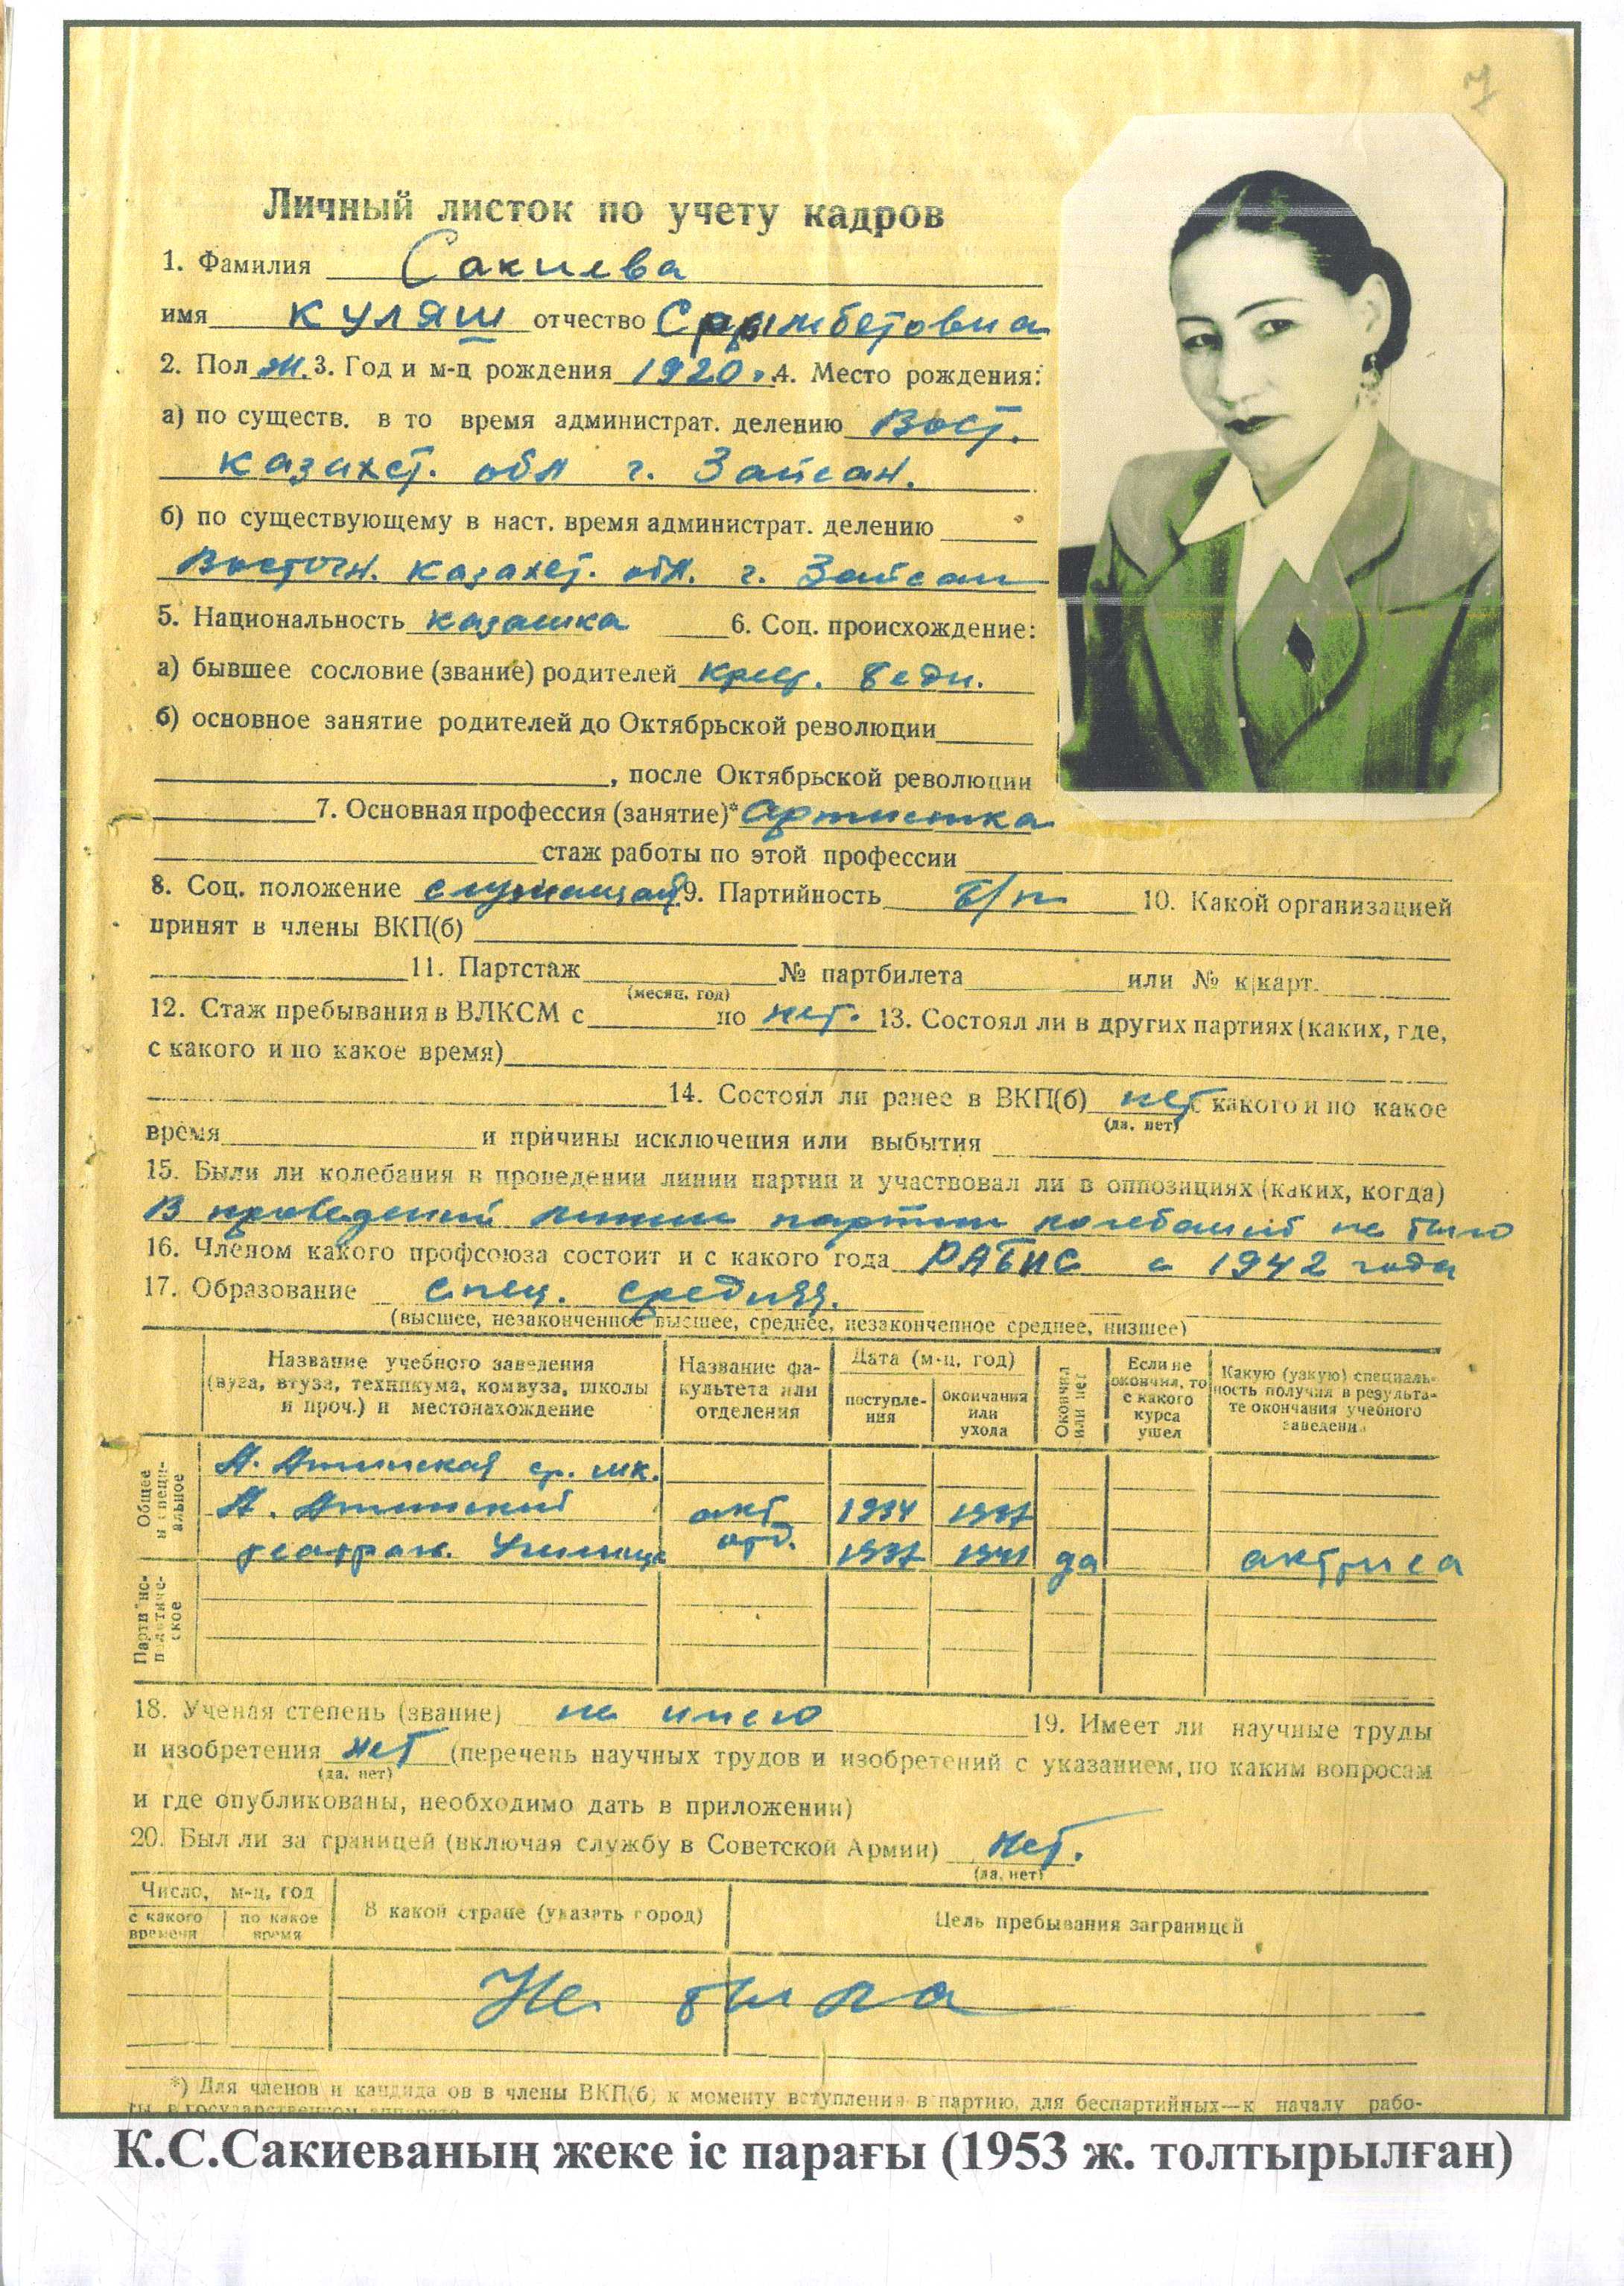 7
Личный листок по учету кадров
1. Фамилия Сакиева
имя Куляш отчество Сарымбетовна
2. Пол Ж. 3. Год и м-ц рождения 1920 г. 4. Место рождения:
а) по существ. в то время администрат. делению Вост.
казахст. обл г. Зайсан.
б) по существующему в наст. время администрат. делению
Восточн. казахст. обл. г. Зайсан
5. Национальность казашка 6. Соц. происхождение:
а) бывшее сословие (звание) родителей крест. бедн.
б) основное занятие родителей до Октябрьской революции
, после Октябрьской революции
7. Основная профессия (занятие)* Артистка
стаж работы по этой профессии
8. Соц. положение служащая 9. Партийность б/п 10. Какой организацией
принят в члены ВКП(б)
11. Партстаж № партбилета или № к|карт.
(месяц, год)
12. Стаж пребывания в ВЛКСМ с по нет. 13. Состоял ли в других партиях (каких, где,
с какого и по какое время)
14. Состоял ли ранее в ВКП(б) нет с какого и по какое
(да, нет)
время и причины исключения или выбытия
15. Были ли колебания в проведении линии партии и участвовал ли в оппозициях (каких, когда)
В проведений линии партии колебаний не было
16. Членом какого профсоюза состоит и с какого года РАБИС с 1942 года
17. Образование спец. средняя.
(высшее, незаконченное высшее, среднее, незаконченное среднее, низшее)
Название учебного заведения (вуза, втуза, техникума, комвуза, школы и проч.) и местонахождение
Название факультета или отделения
Дата (м-ц, год)
поступления
окончания или ухода
Окончил или нет
Если не окончил, то с какого курса ушел
Какую (узкую) специальность получил в результате окончания учебного заведения
Общее и специальное
А. Атинская ср. шк.
А. Атинский акт 1934 1937
театрал. Училищ отд. 1937 1941 да актриса
Партийно-политическое
18. Ученая степень (звание) не имею 19. Имеет ли научные труды
и изобретения нет (перечень научных трудов и изобретений с указанием, по каким вопросам
(да, нет)
и где опубликованы, необходимо дать в приложении)
20. Был ли за границей (включая службу в Советской Армии) нет.
(да, нет)
Число, м-ц, год
с какого времени
по какое время
В какой стране (указать город)
Цель пребывания заграницей
Не была
*) Для членов и кандида ов в члены ВКП(б) к моменту вступления в партию, для беспартийных—к началу рабо-
ты в государственном аппарате
К.С.Сакиеваның жеке іс парағы (1953 ж. толтырылған)